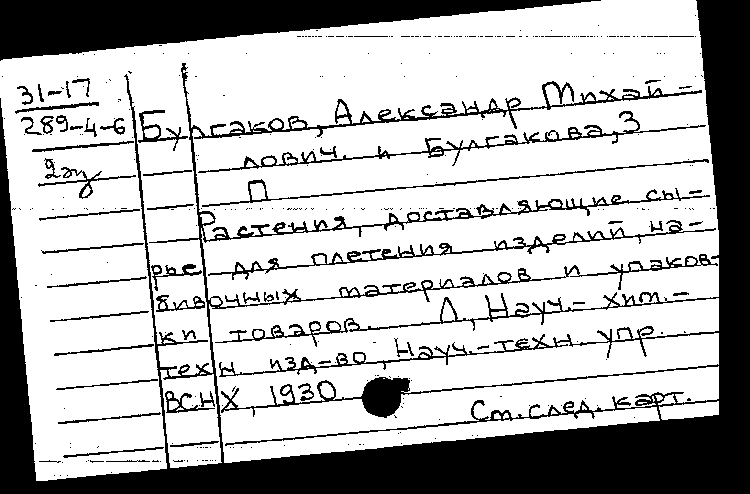 31-17
289-4-6
2 эк
Булгаков, Александр Михай-
лович. и Булгакова, З
П
Растения, доставляющие сы-
рье для плетения изделий, на-
бивочных материалов и упаков-
ки товаров. Л., Науч.-хим.-
техн. изд-во, Науч.-техн. упр.
ВСНХ, 1930
См. след. карт.